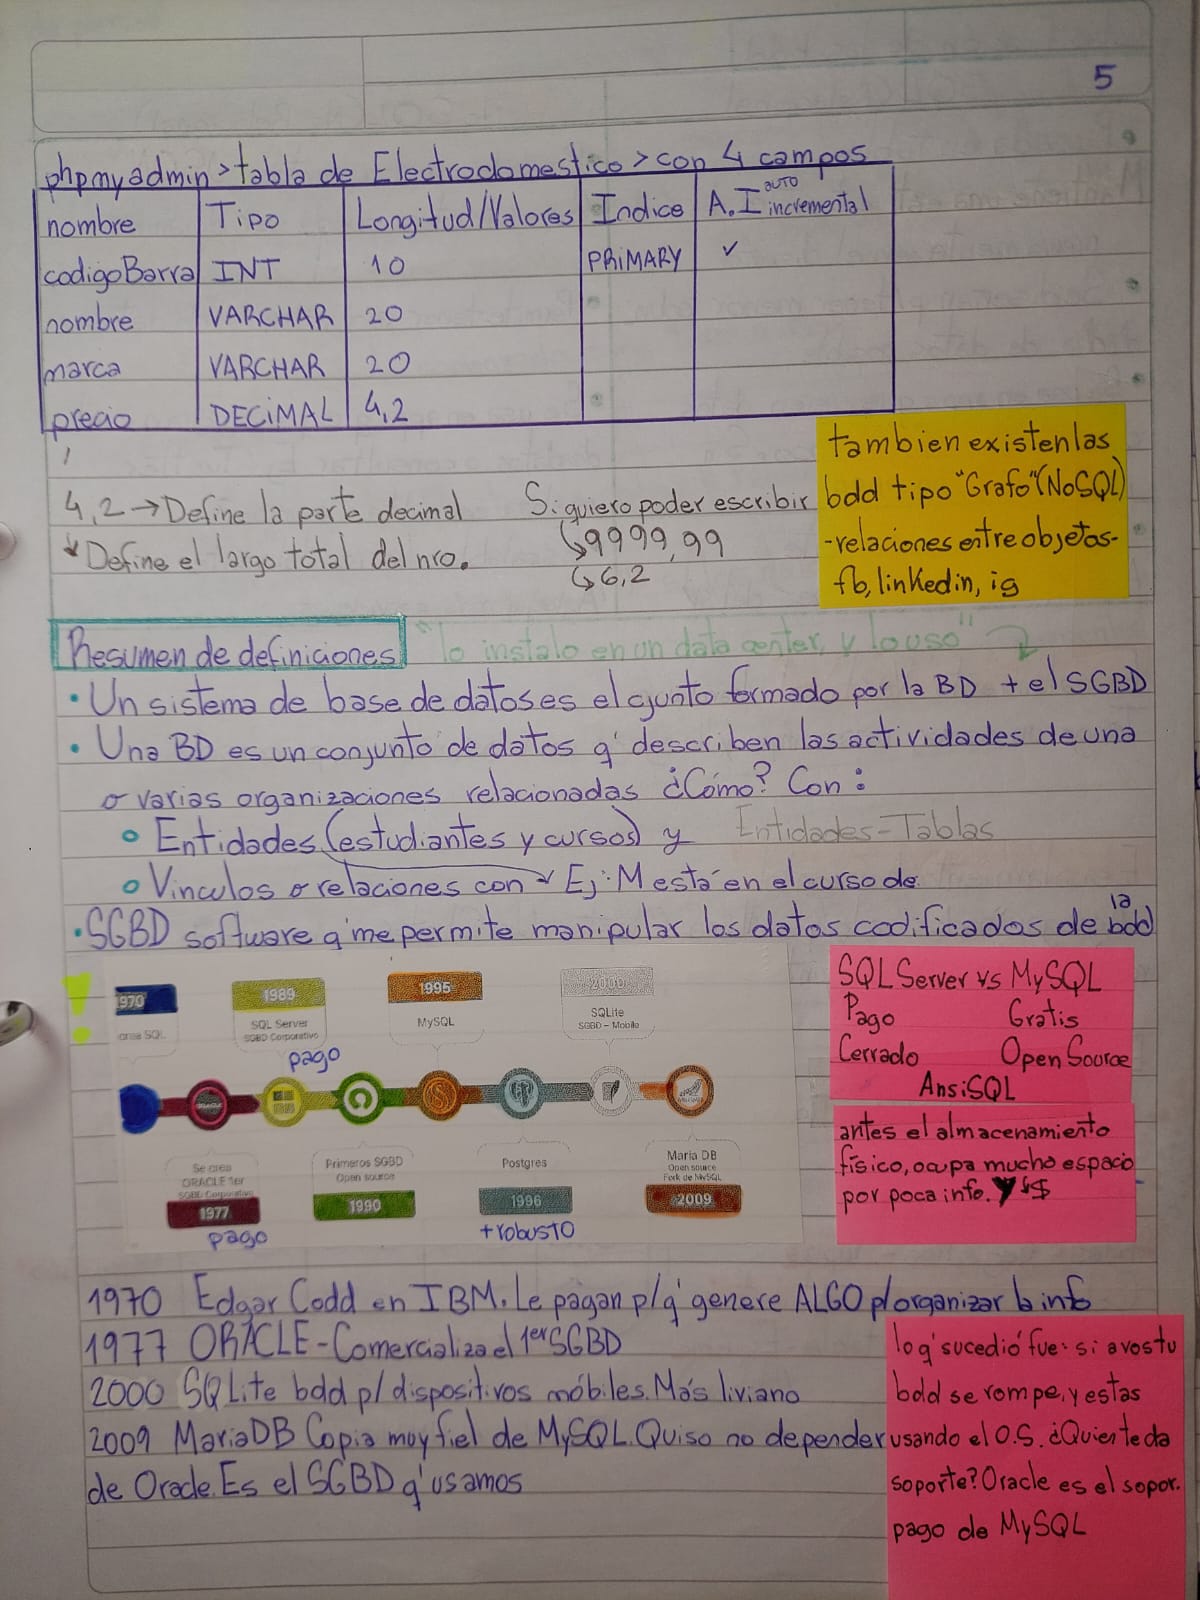 5
phpmyadmin > tabla de Electrodomestico > con 4 campos
nombre | Tipo | Longitud/Valores | Indice | A.I auto incremental
codigoBarra | INT | 10 | PRIMARY | ✓
nombre | VARCHAR | 20
marca | VARCHAR | 20
precio | DECIMAL | 4,2
tambien existen las
bdd tipo "Grafo" (NoSQL)
-relaciones entre objetos-
fb, linkedin, ig
4,2 → Define la parte decimal
↓ Define el largo total del nro.
Si quiero poder escribir
↳ 9999,99
↳ 6,2
Resumen de definiciones
"lo instalo en un data center, y lo uso"
• Un sistema de base de datos es el cjunto formado por la BD + el SGBD
• Una BD es un conjunto de datos q' describen las actividades de una
o varias organizaciones relacionadas ¿Cómo? Con:
◦ Entidades (estudiantes y cursos) y Entidades-Tablas
◦ Vinculos o relaciones con Ej: M está en el curso de
• SGBD software q' me permite manipular los datos codificados de la bdd
1970
1989
1995
2000
area SQL
SQL Server
SGBD Corporativo
MySQL
SQLite
SGBD - Mobile
pago
ORACLE
Se crea
ORACLE 1er
SGBD Corporativo
1977
pago
Primeros SGBD
Open source
1990
Postgres
1996
+robusto
Maria DB
Open source
Fork de MySQL
2009
SQL Server vs MySQL
Pago Gratis
Cerrado Open Source
AnsiSQL
antes el almacenamiento
físico, ocupa mucho espacio
por poca info. Y ↓$
1970 Edgar Codd en IBM. Le pagan p/q' genere ALGO p/organizar la info
1977 ORACLE - Comercializa el 1er SGBD
2000 SQLite bdd p/ dispositivos móbiles. Más liviano
2009 MariaDB Copia muy fiel de MySQL. Quiso no depender
de Oracle. Es el SGBD q' usamos
lo q' sucedió fue: si a vos tu
bdd se rompe, y estas
usando el O.S. ¿Quien te da
soporte? Oracle es el sopor.
pago de MySQL